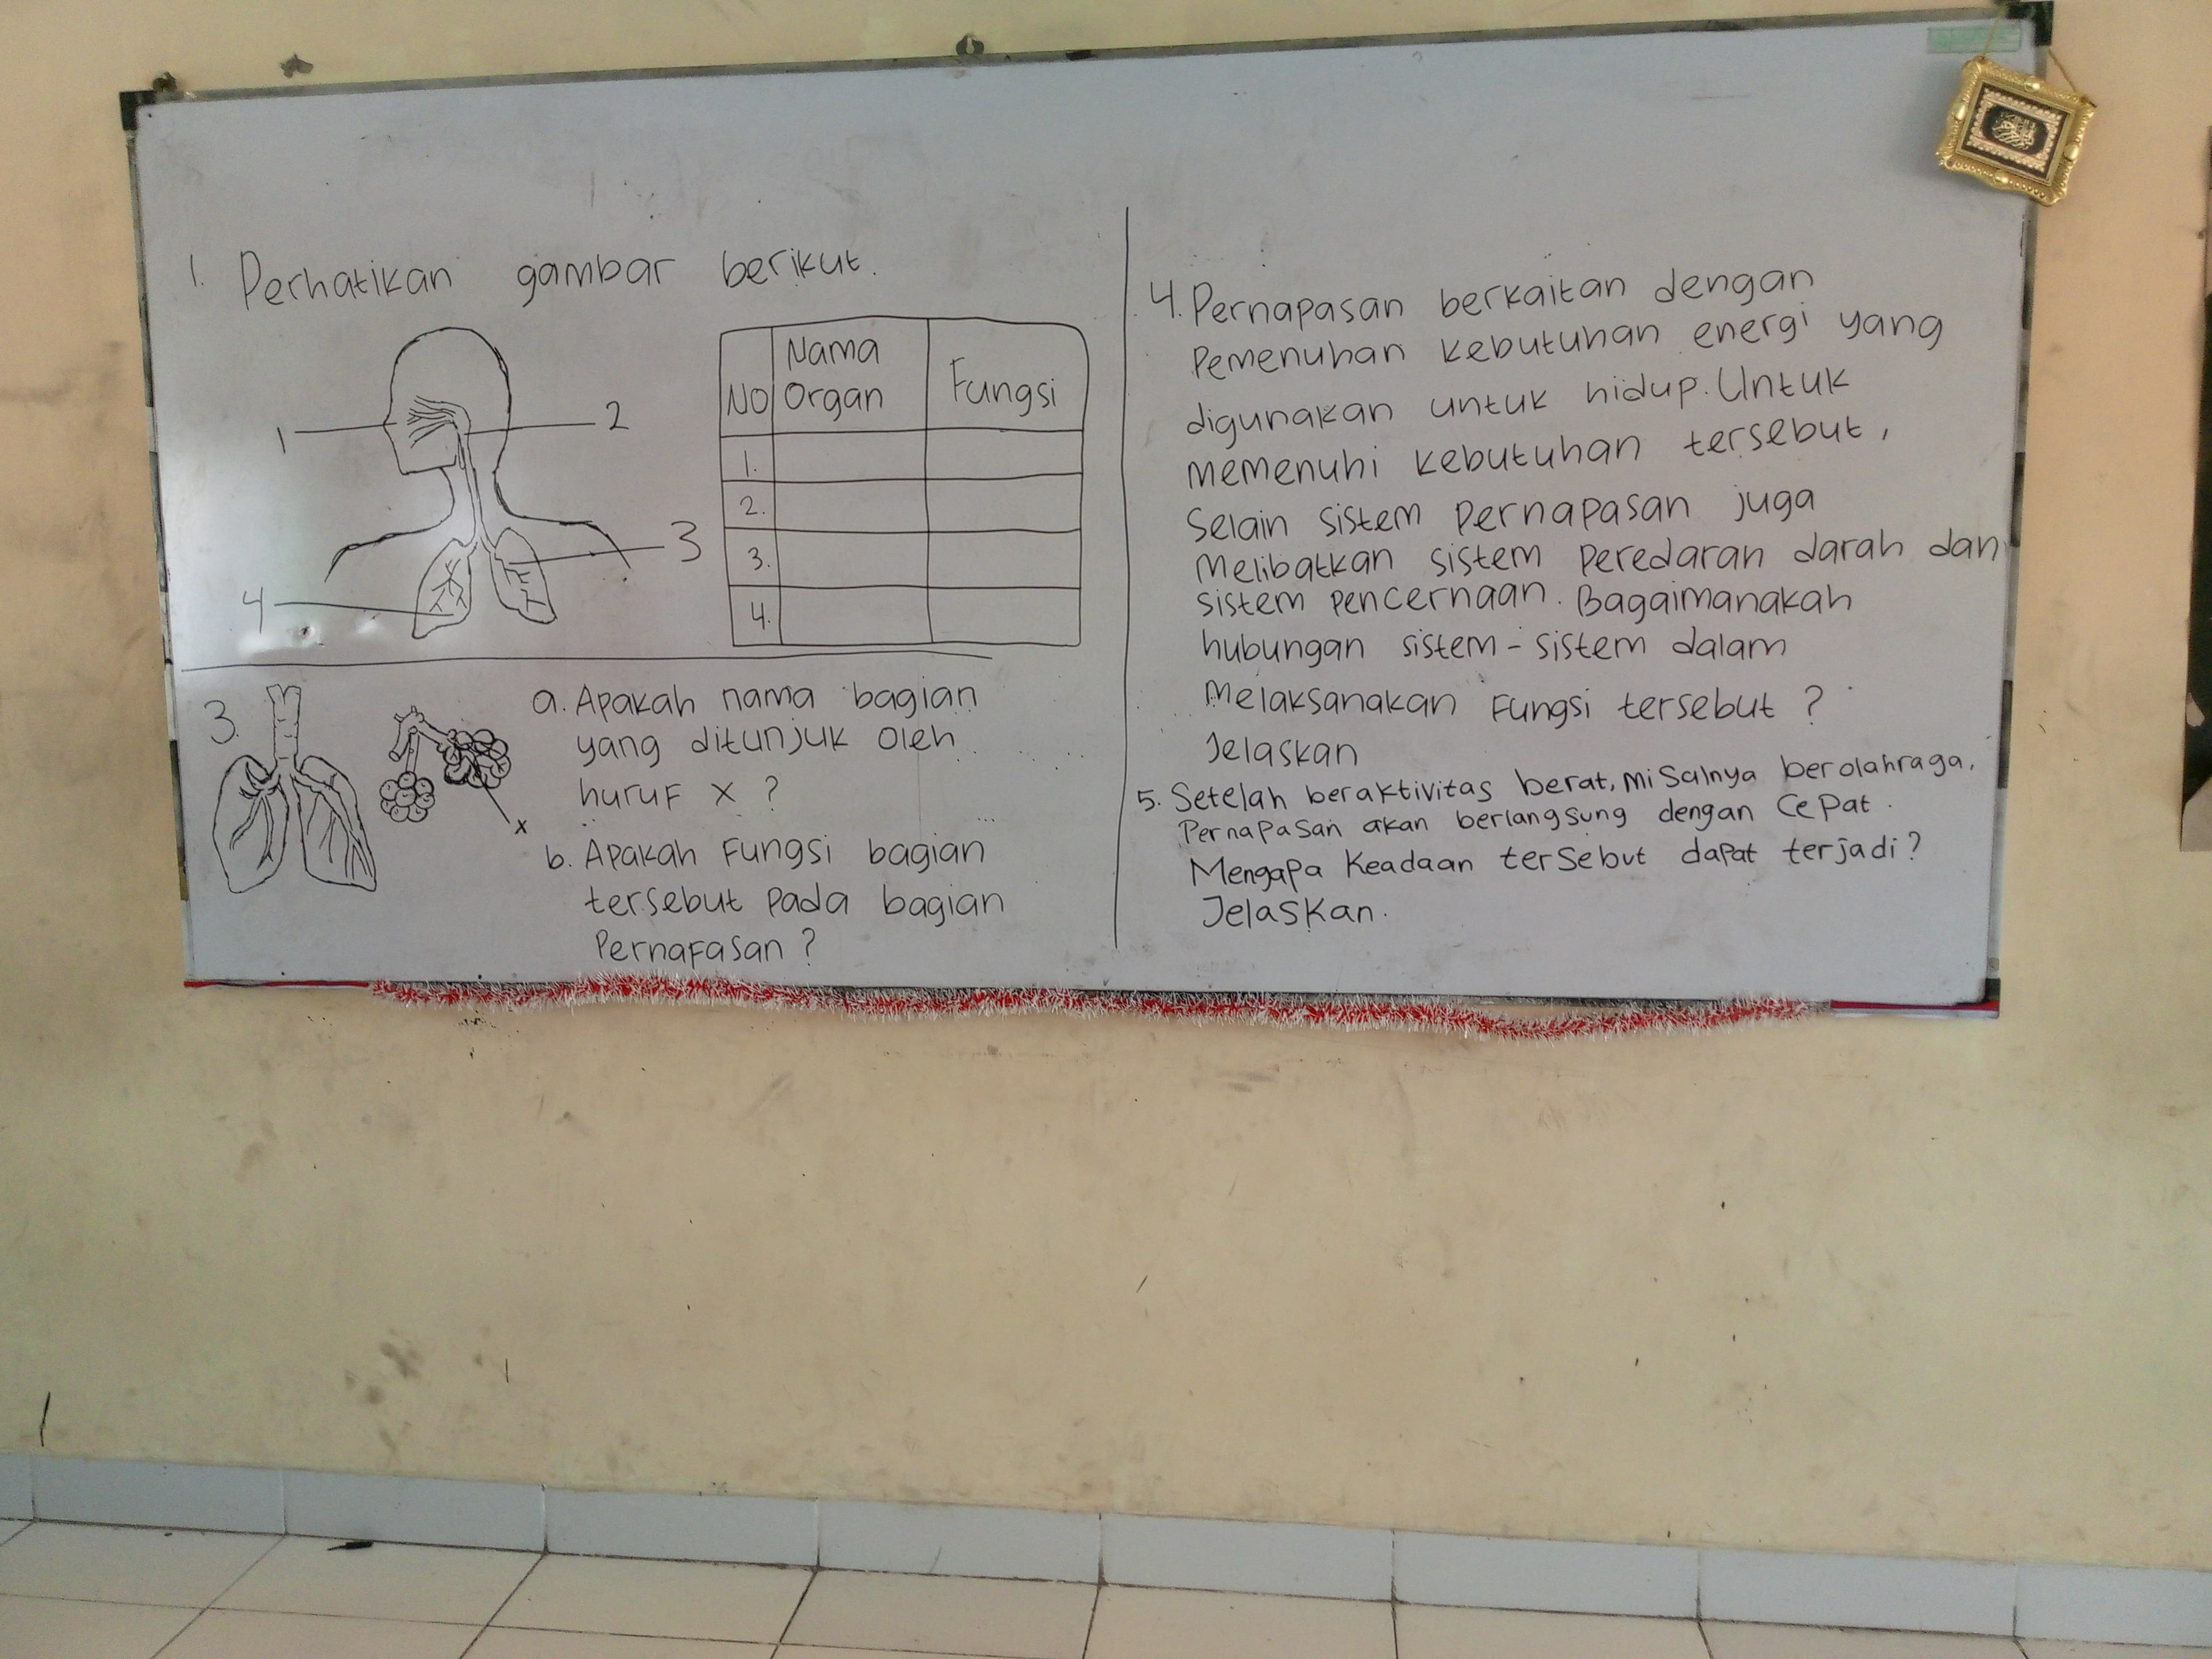 1. Perhatikan gambar berikut.
1
2
3
4
No
Nama
Organ
Fungsi
1.
2.
3.
4.
3.
x
a. Apakah nama bagian
yang ditunjuk oleh
huruf x ?
b. Apakah Fungsi bagian
tersebut pada bagian
Pernafasan ?
4. Pernapasan berkaitan dengan
Pemenuhan kebutuhan energi yang
digunakan untuk hidup. Untuk
memenuhi kebutuhan tersebut,
Selain sistem pernapasan juga
melibatkan sistem peredaran darah dan
sistem pencernaan. Bagaimanakah
hubungan sistem-sistem dalam
melaksanakan Fungsi tersebut ?
Jelaskan
5. Setelah beraktivitas berat, misalnya berolahraga,
Pernapasan akan berlangsung dengan cepat.
Mengapa Keadaan tersebut dapat terjadi?
Jelaskan.